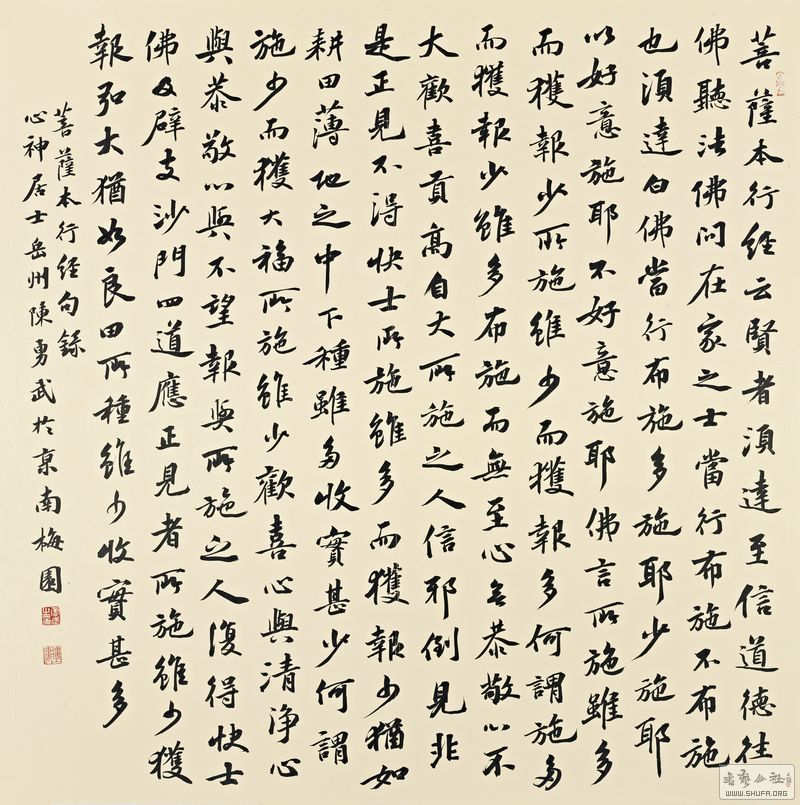 菩薩本行經云賢者須達至信道德往
佛聽法佛問在家之士當行布施不布施
也須達白佛當行布施多施耶少施耶
以好意施耶不好意施耶佛言所施雖多
而獲報少所施雖少而獲報多何謂施多
而獲報少雖多布施而無至心无恭敬心不
大歡喜貢高自大所施之人信邪倒見非
是正見不得快士所施雖多而獲報少猶如
耕田薄地之中下種雖多收實甚少何謂
施少而獲大福所施雖少歡喜心與清淨心
與恭敬心與不望報與所施之人復得快士
佛及辟支沙門四道應正見者所施雖少獲
報弘大猶如良田所種雖少收實甚多
菩薩本行經句錄
心神居士岳州陳勇武於京南梅園
書藝公社
WWW.SHUFA.ORG